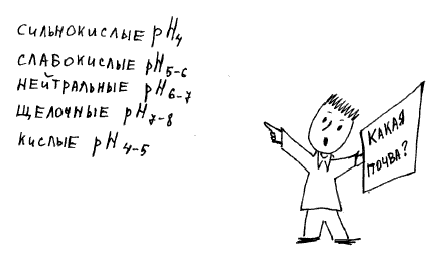 СИЛЬНОКИСЛЫЕ pH4
СЛАБОКИСЛЫЕ pH5-6
НЕЙТРАЛЬНЫЕ pH6-7
ЩЕЛОЧНЫЕ pH7-8
КИСЛЫЕ pH4-5
КАКАЯ
ПОЧВА?